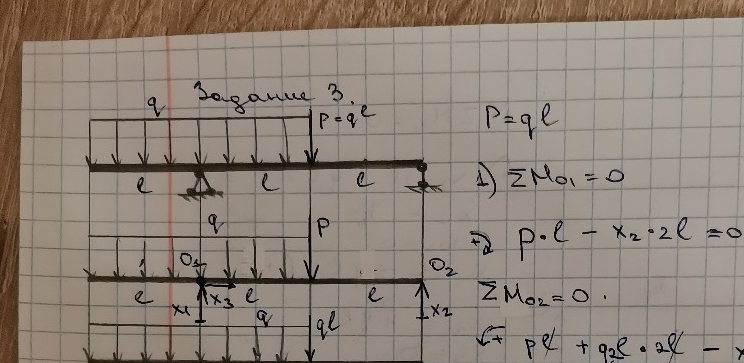 Задание 3.
q
P=ql
P=ql
l l l
1) ΣM₀₁=0
q
P
P·l − x₂·2l =0
O₁
O₂
l x₃ l l
x₁
x₂
ΣM₀₂=0.
q
ql
Pl + q2l·2l −